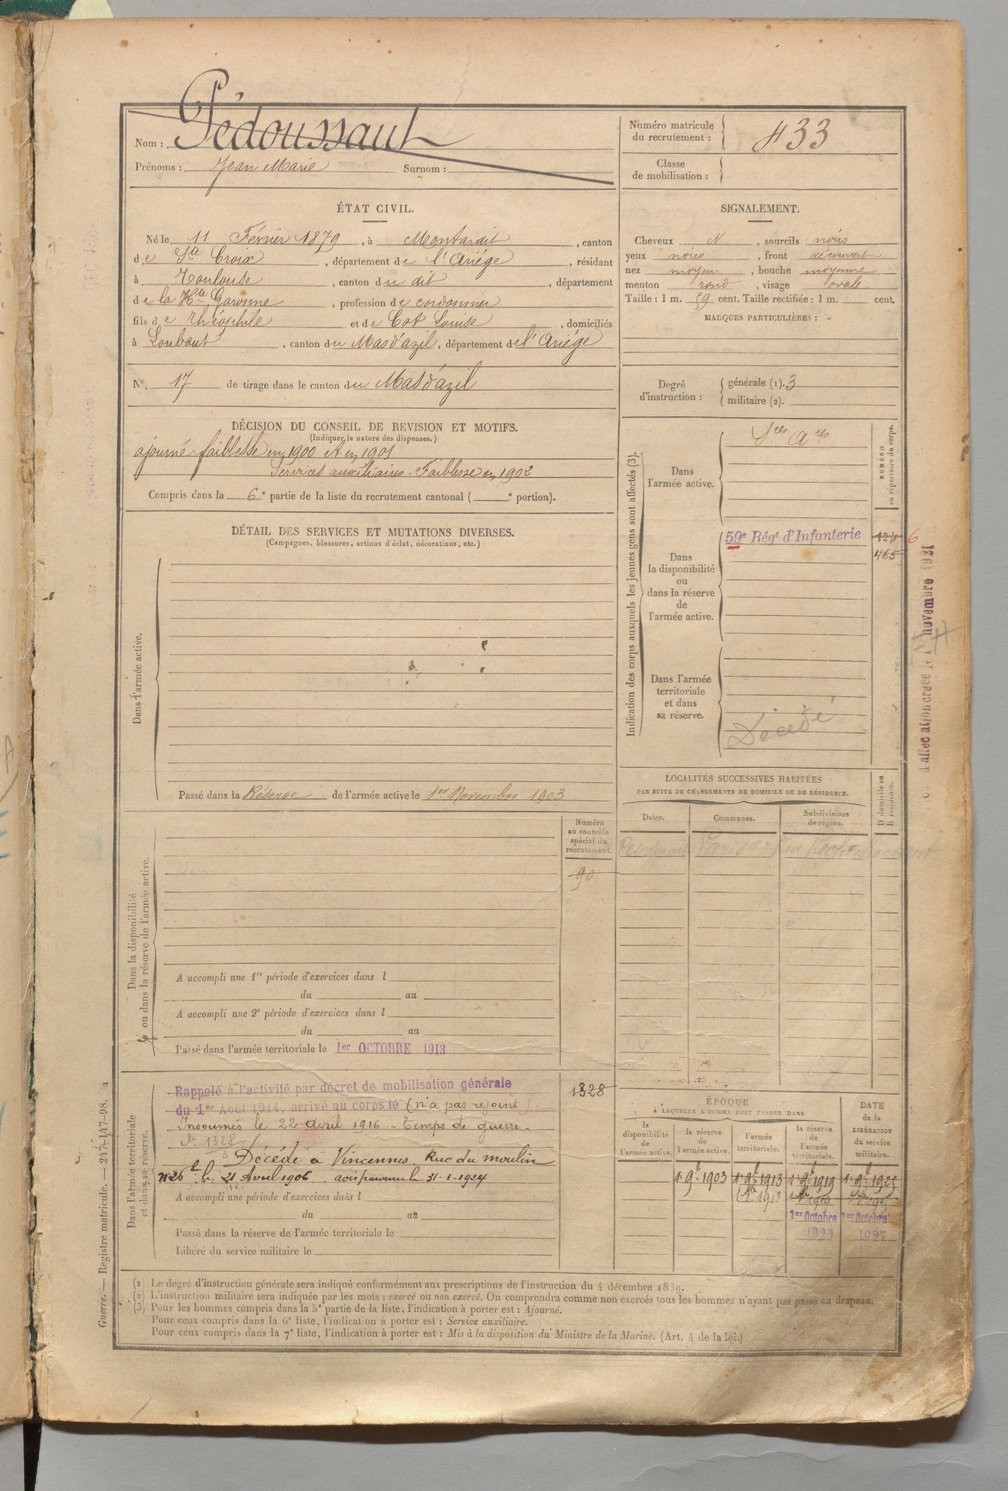 Nom : Pédoussaut
Prénoms : Jean Marie Surnom :
Numéro matricule du recrutement : 433
Classe de mobilisation :
ÉTAT CIVIL.
Né le 11 Février 1879, à Montardit, canton
de Ste Croix, département de l'Ariége, résidant
à Toulouse, canton du dit, département
de la Hte Garonne, profession de cordonnier
fils de Théophile et de Cot Louise, domiciliés
à Loubaut, canton du Mas d'azil, département de l'Ariége
N°. 17 de tirage dans le canton du Mas d'azil
DÉCISION DU CONSEIL DE REVISION ET MOTIFS.
(Indiquer la nature des dispenses.)
ajourné faiblesse en 1900 et en 1901
Services auxiliaires. Faiblesse en 1902
Compris dans la 6e partie de la liste du recrutement cantonal ( e portion).
DÉTAIL DES SERVICES ET MUTATIONS DIVERSES.
(Campagnes, blessures, actions d'éclat, décorations, etc.)
Dans l'armée active.
Passé dans la Réserve de l'armée active le 1er Novembre 1903
Numéro au contrôle spécial du recrutement.
90
Dans la disponibilité ou dans la réserve de l'armée active.
A accompli une 1re période d'exercices dans l
du au
A accompli une 2e période d'exercices dans l
du au
Passé dans l'armée territoriale le 1er OCTOBRE 1913
Dans l'armée territoriale et dans sa réserve.
Rappelé à l'activité par décret de mobilisation générale
du 1er Août 1914, arrivé au corps le (n'a pas rejoint)
Insoumis le 22 avril 1916 - Temps de guerre.
1328
1328
Décédé à Vincennes Rue du moulin
le 21 Avril 1906 31-1-1924
A accompli une période d'exercices dans l
du au
Passé dans la réserve de l'armée territoriale le
Libéré du service militaire le
SIGNALEMENT.
Cheveux N, sourcils noirs
yeux noirs, front découvert
nez moyen, bouche moyenne
menton rond, visage ovale
Taille : 1 m. 59 cent. Taille rectifiée : 1 m. cent.
MARQUES PARTICULIÈRES :
Degré d'instruction : générale (1). 3
militaire (2).
Indication des corps auxquels les jeunes gens sont affectés (3).
NUMÉRO au répertoire du corps.
Dans l'armée active.
Dans la disponibilité ou dans la réserve de l'armée active.
59e Régt d'Infanterie
465
6
novembre 1921
Dans l'armée territoriale et dans sa réserve.
Décédé
LOCALITÉS SUCCESSIVES HABITÉES
PAR SUITE DE CHANGEMENTS DE DOMICILE OU DE RÉSIDENCE.
Dates. Communes. Subdivisions de région. D domicile ou R résidence.
ÉPOQUE
À LAQUELLE L'HOMME DOIT PASSER DANS
DATE de la LIBÉRATION du service militaire.
la disponibilité de l'armée active. la réserve de l'armée active. l'armée territoriale. la réserve de l'armée territoriale.
1. 9bre 1903 1. 9bre 1913 1. 9bre 1919
1913
1er Octobre 1er Octobre
1920 1927
Guerre. — Registre matricule. — 247-147-98.
(1) Le degré d'instruction générale sera indiqué conformément aux prescriptions de l'instruction du 4 décembre 1889.
(2) L'instruction militaire sera indiquée par les mots : exercé ou non exercé. On comprendra comme non exercés tous les hommes n'ayant pas passé sa drapeau.
(3) Pour les hommes compris dans la 5e partie de la liste, l'indication à porter est : Ajourné.
Pour ceux compris dans la 6e liste, l'indication à porter est : Service auxiliaire.
Pour ceux compris dans la 7e liste, l'indication à porter est : Mis à la disposition du Ministre de la Marine. (Art. 4 de la loi.)